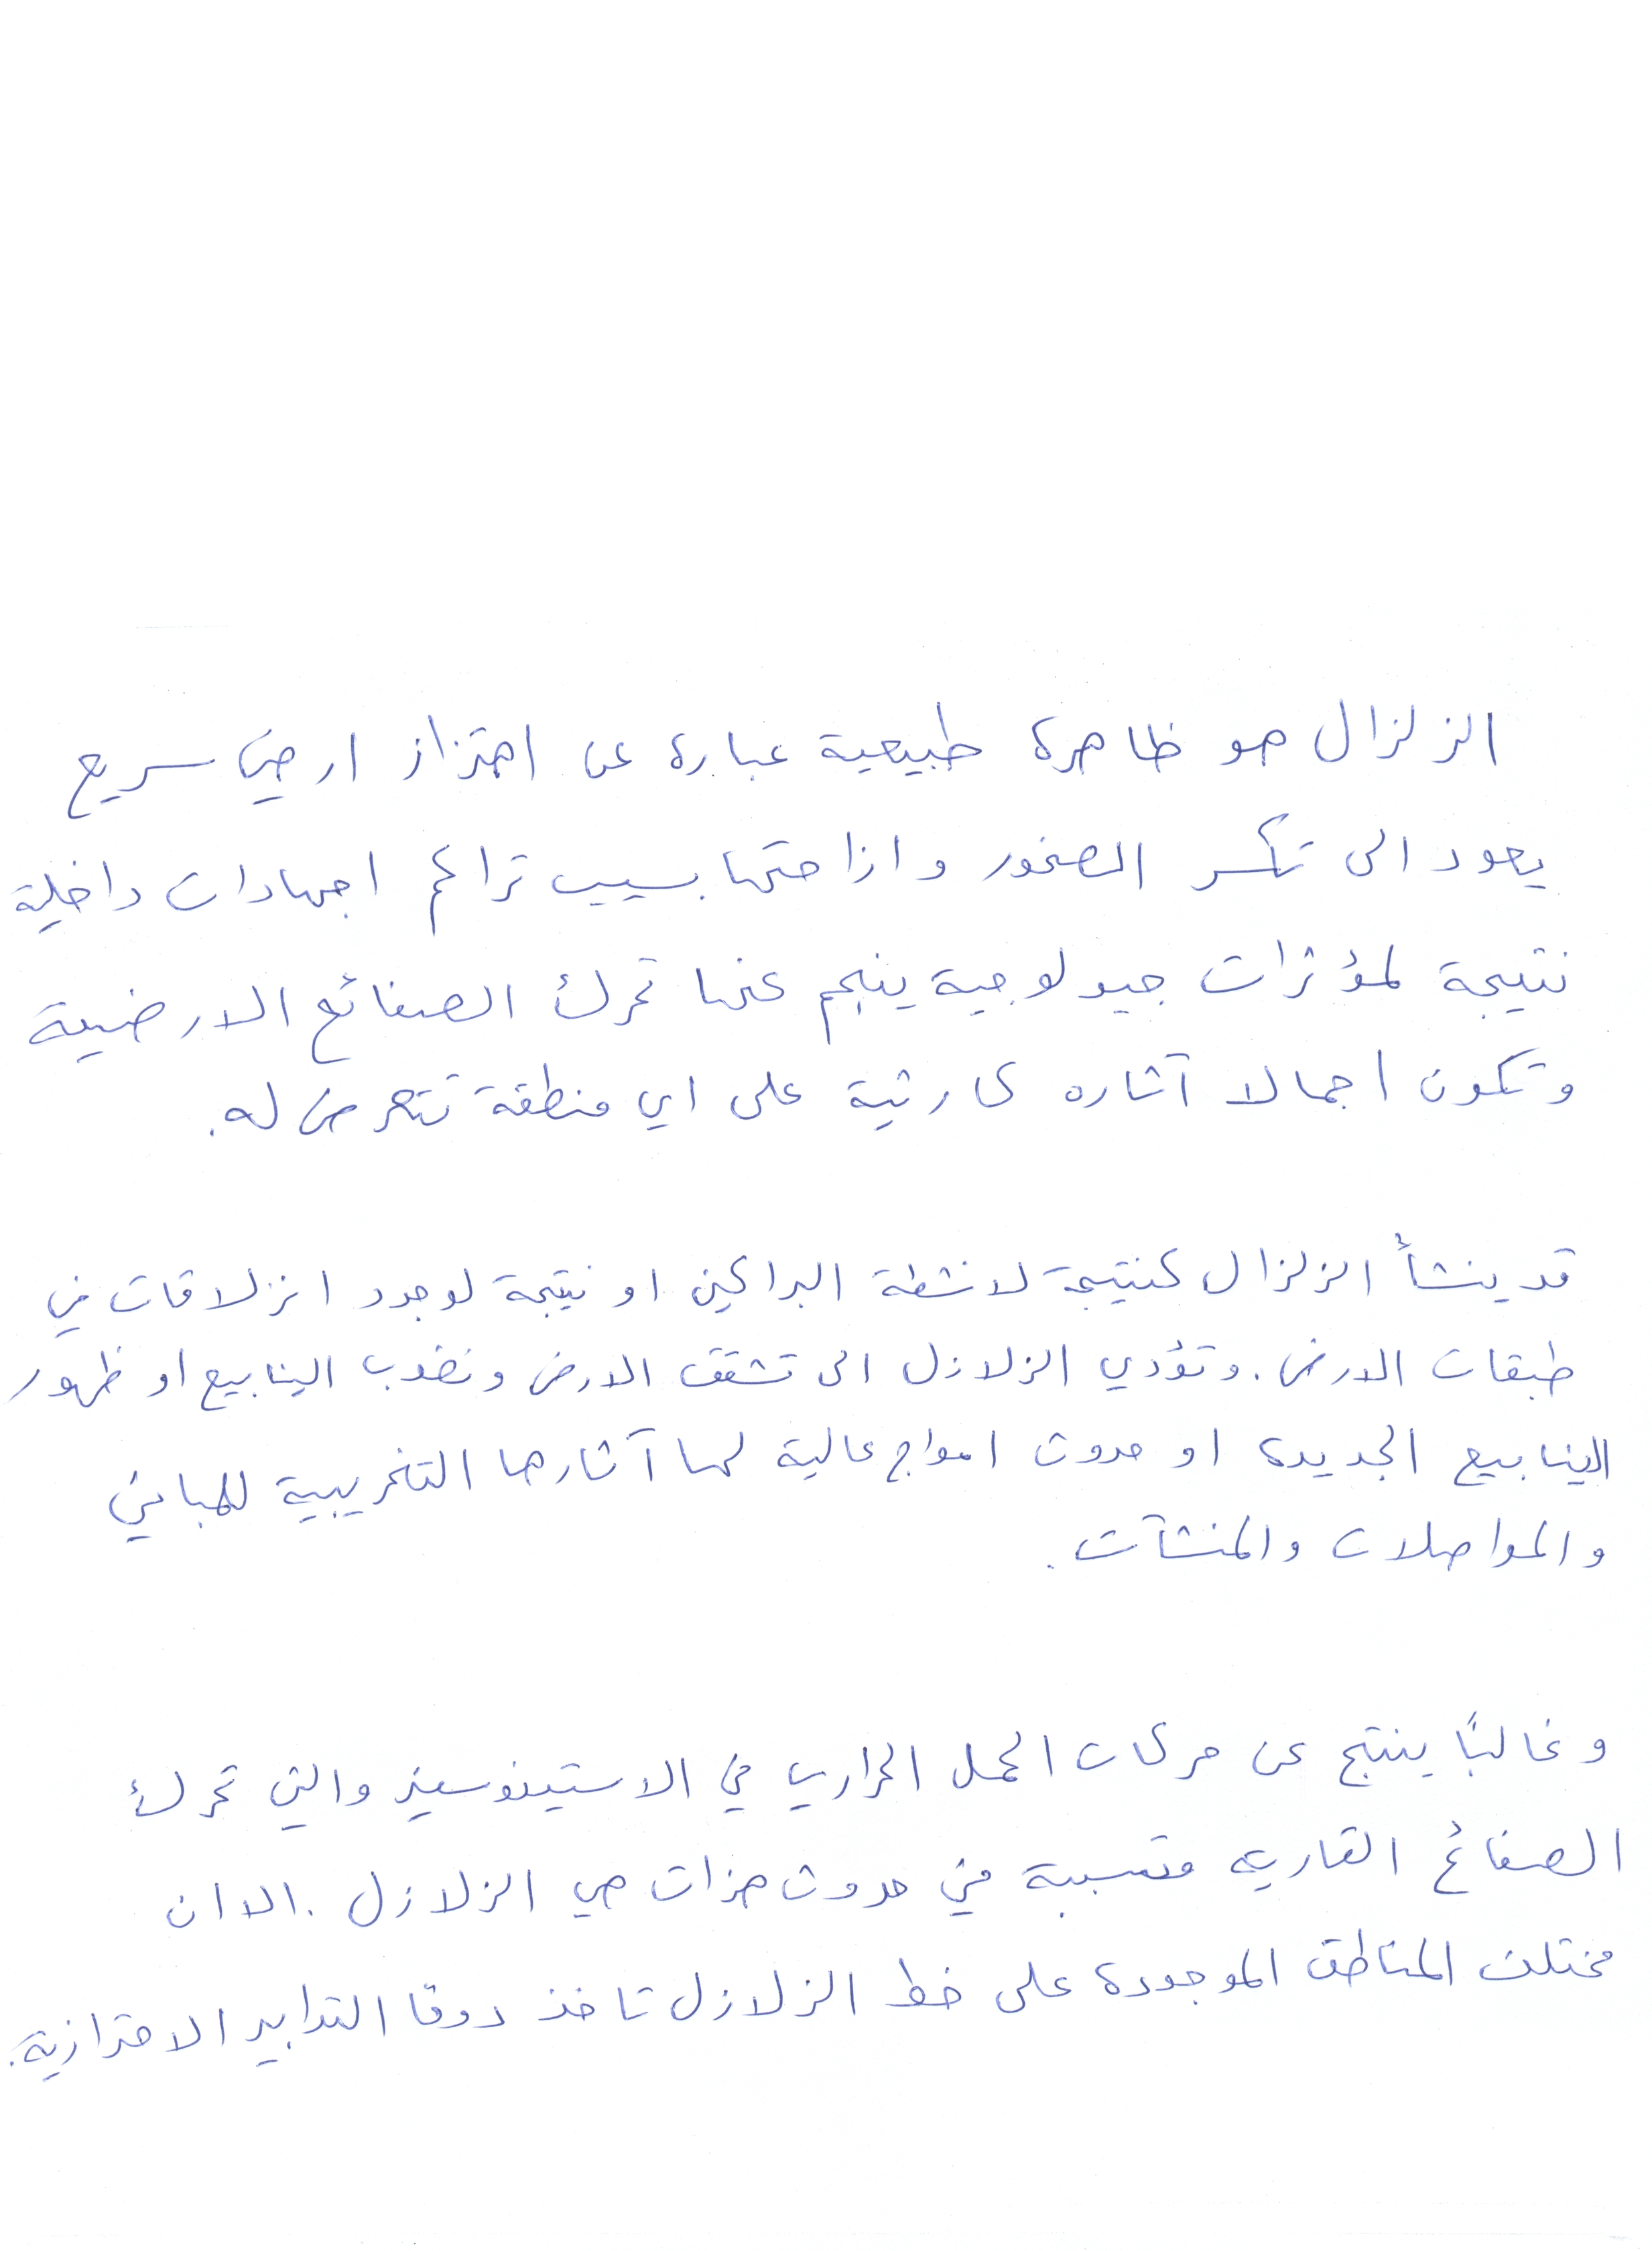 الزلزال هو ظاهرة طبيعية عبارة عن اهتزاز ارضي سريع
يعود الى تكسر الصخور وازاحتها بسبب تراكم اجهادات داخلية
نتيجة لمؤثرات جيولوجية ينجم عنها تحرك الصفائح الارضية
وتكون اجمالا آثاره كارثية على اي منطقة تتعرض له.
قد ينشأ الزلزال كنتيجة لانشطة البراكين او نتيجة لوجود انزلاقات في
طبقات الارض. وتؤدي الزلازل الى تشقق الارض ونضوب الينابيع او ظهور
الينابيع الجديدة او حدوث امواج عالية لها آثارها التخريبية للمباني
والمواصلات والمنشآت.
وغالبًا ينتج عن حركات الحمل الحراري في الاستينوسفير والتي تحرك
الصفائح القارية متسببة في حدوث هزات هي الزلازل. الا ان
مختلف المناطق الموجودة على خط الزلازل تاخذ دوما التدابير الاحترازية.